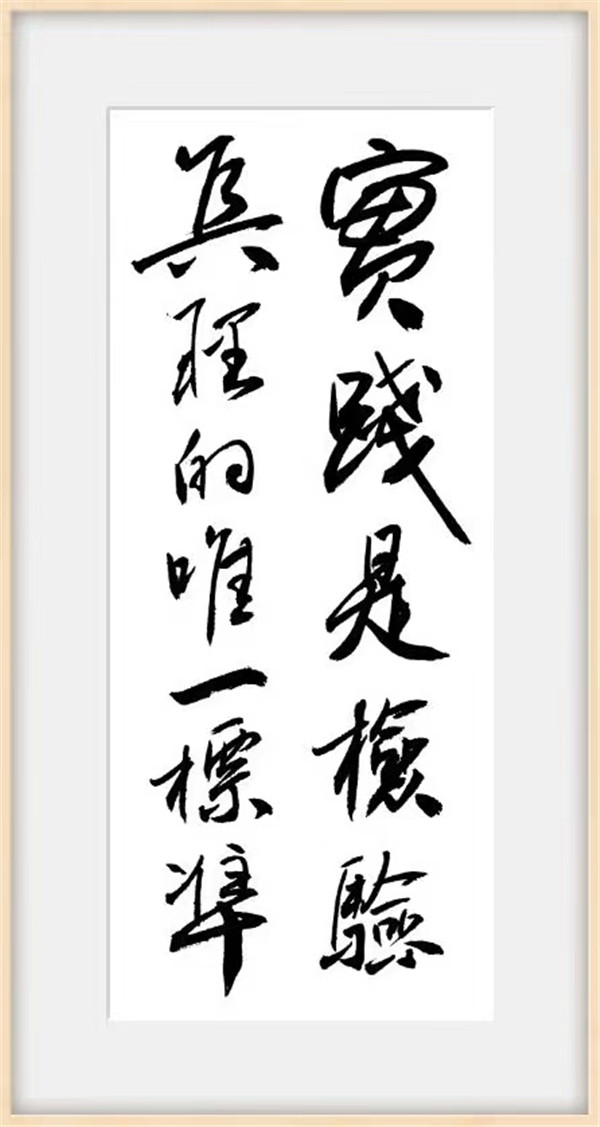 實踐是檢驗
真理的唯一標準